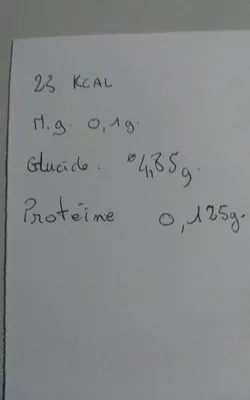 23 KCAL
M.g. 0,1g.
Glucide. 4,85g.
Protéine 0,125g.